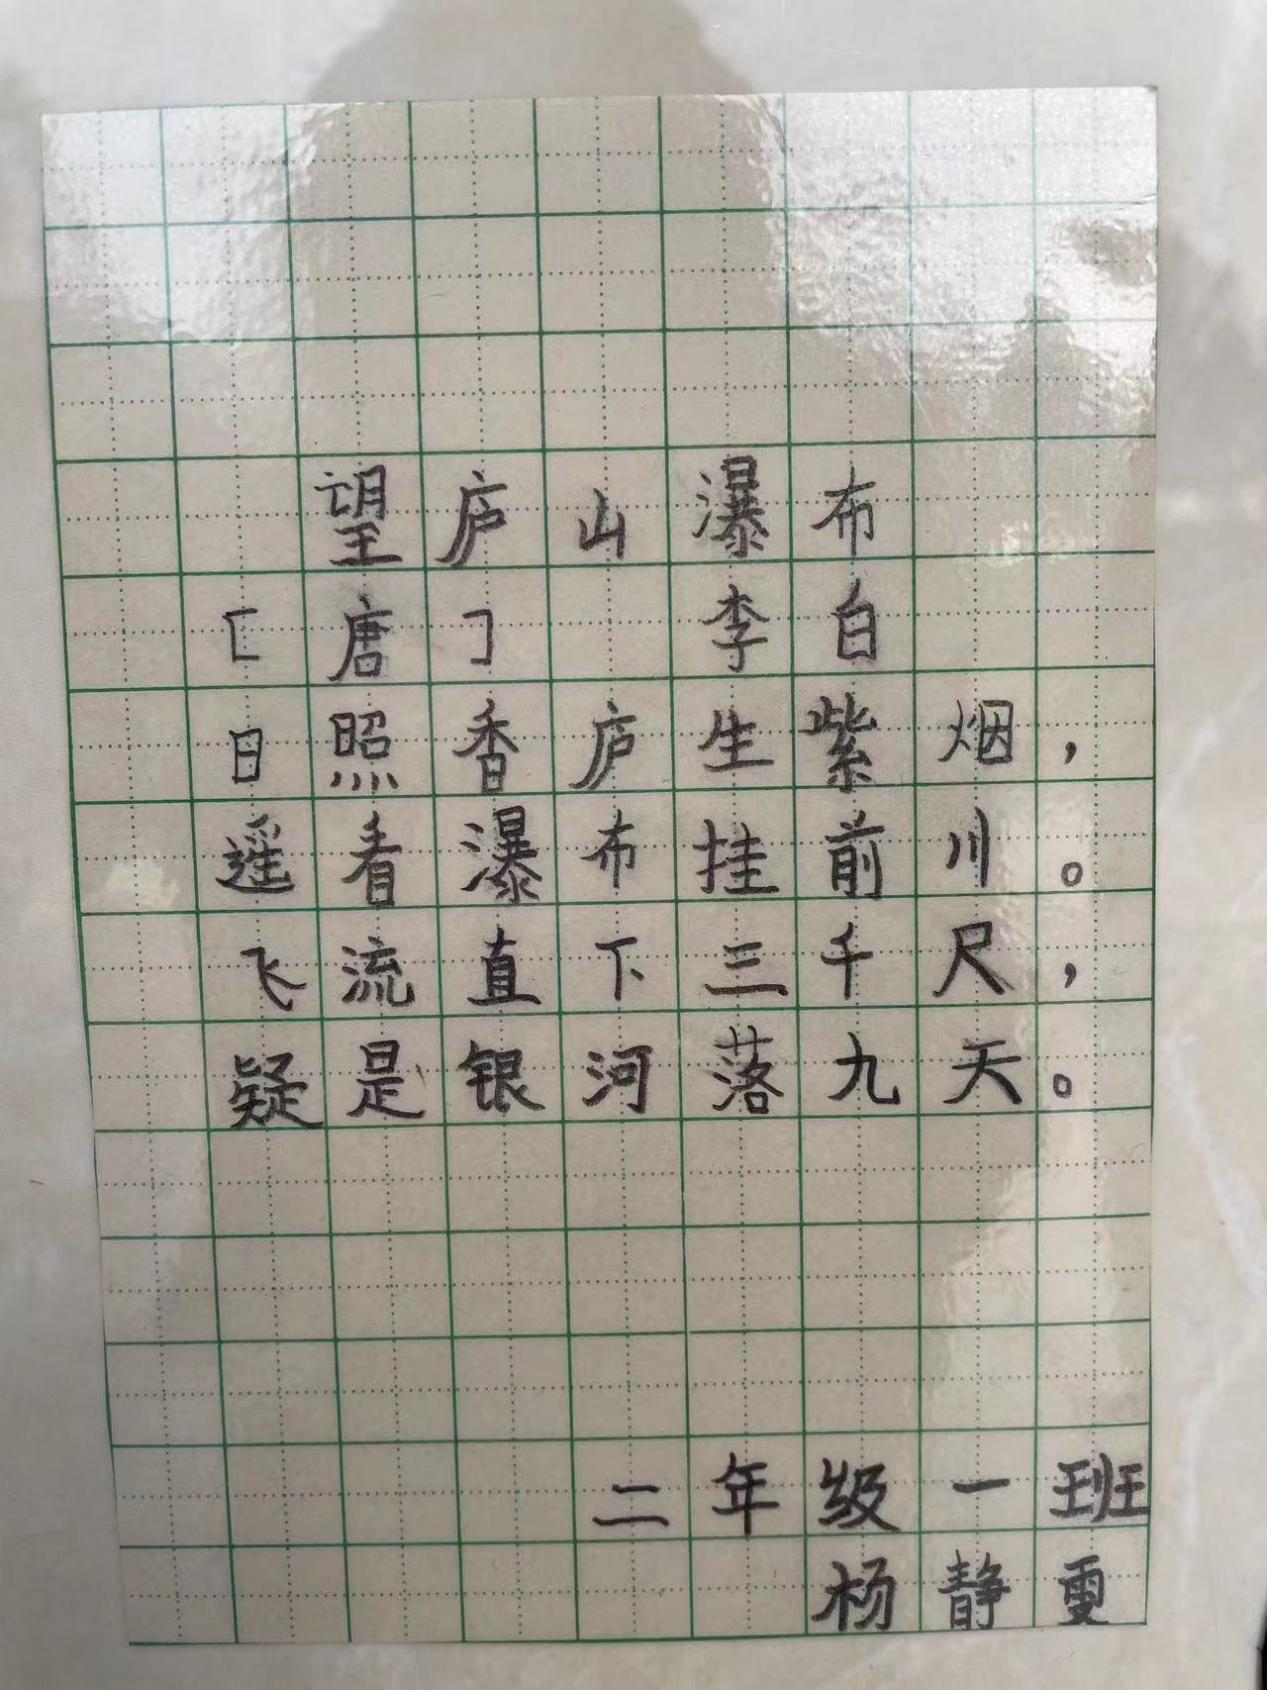 望庐山瀑布
[唐] 李白
日照香庐生紫烟，
遥看瀑布挂前川。
飞流直下三千尺，
疑是银河落九天。
二年级一班
杨静雯